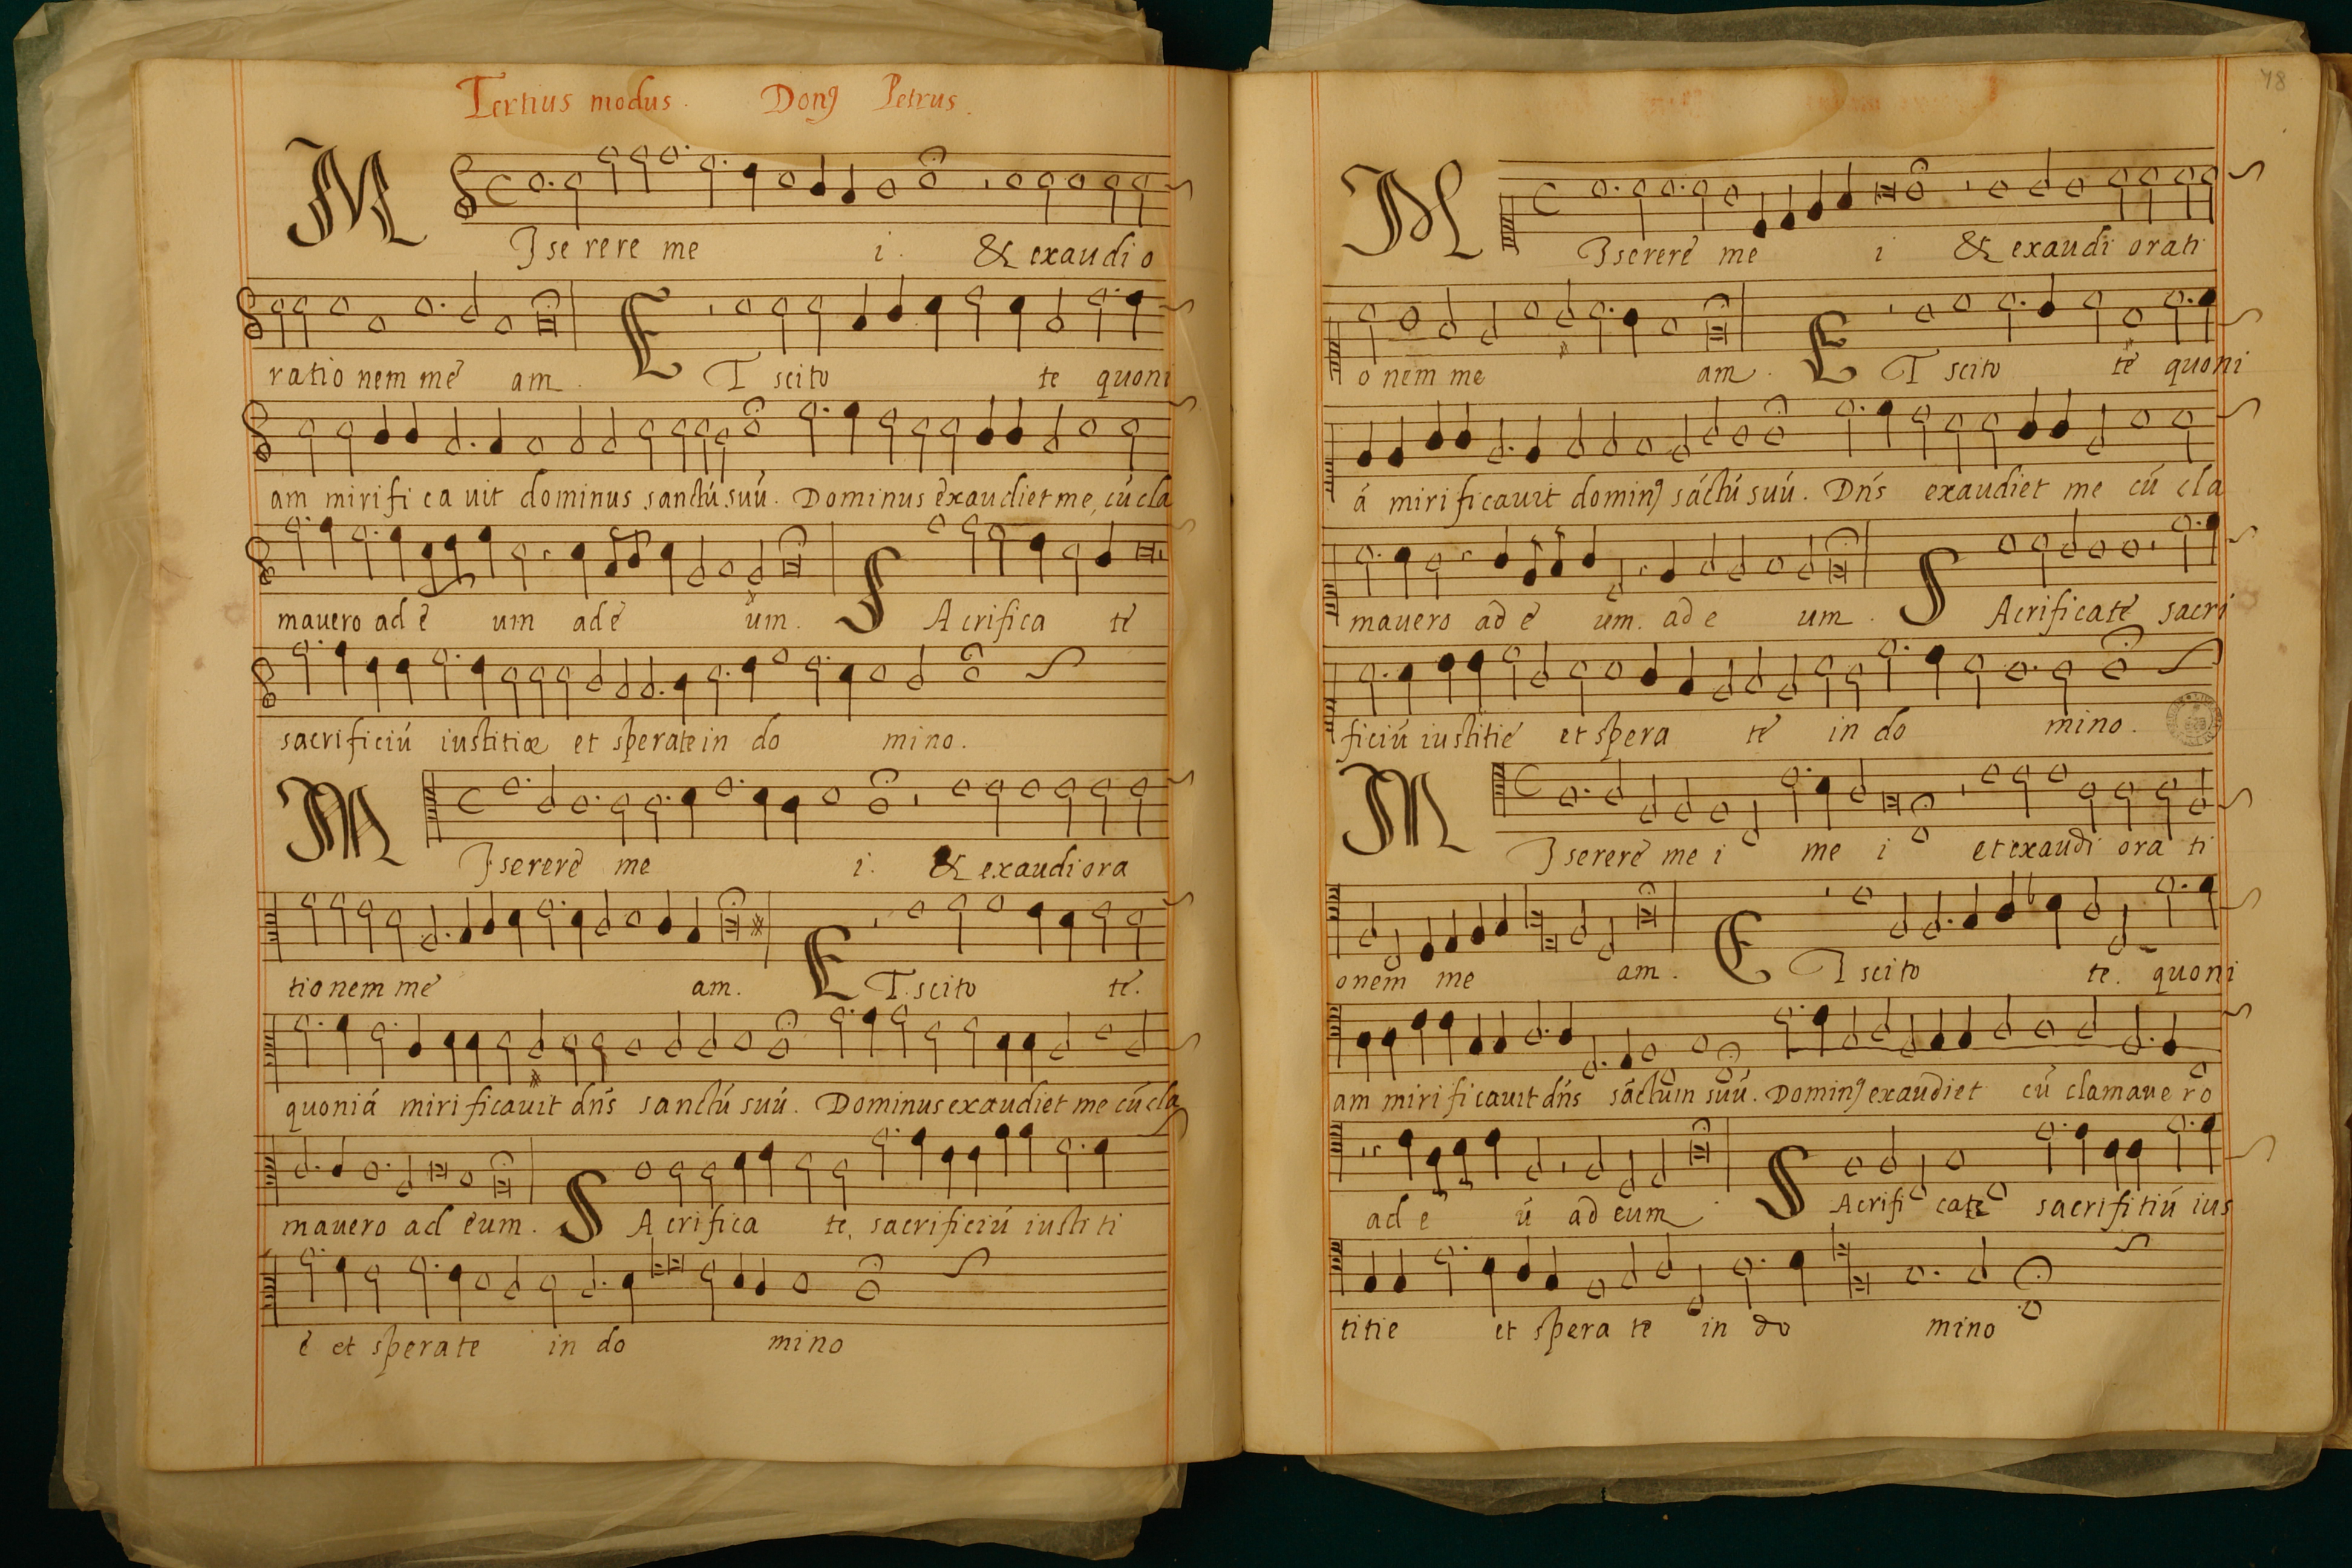 Tertius modus. Donꝯ Petrus.
M Ise rere me i. & exaudi o
ratio nem me am. ET scito te quoni
am mirifi ca uit dominus sanctú suú. Dominus exaudiet me, cú cla
mauero ad e um ad e um. SAcrifica te
sacrificiú iustitiæ et sperate in do mino.
M Iserere me i. & exaudi ora
tionem me am. ET scito te.
quoniá mirificauit dn̄s sanctú suú. Dominus exaudiet me cú cla
mauero ad eum. SAcrifica te, sacrificiú iustiti
e et sperate in do mino
78
M Iserere me i & exaudi orati
onem me am. ET scito te quoni
á mirificauit dominꝯ sáctú suú. Dn̄s exaudiet me cú cla
mauero ad e um. ad e um. SAcrificate sacri
ficiú iustitie et spera te in do mino.
M Iserere me i me i et exaudi ora ti
onem me am. ET scito te. quoni
am mirificauit dn̄s sáctum suú. Dominꝯ exaudiet cú clamaue ro
ad e ú ad eum. SAcrifi cate sacrifitiú ius
titie et spera te in do mino